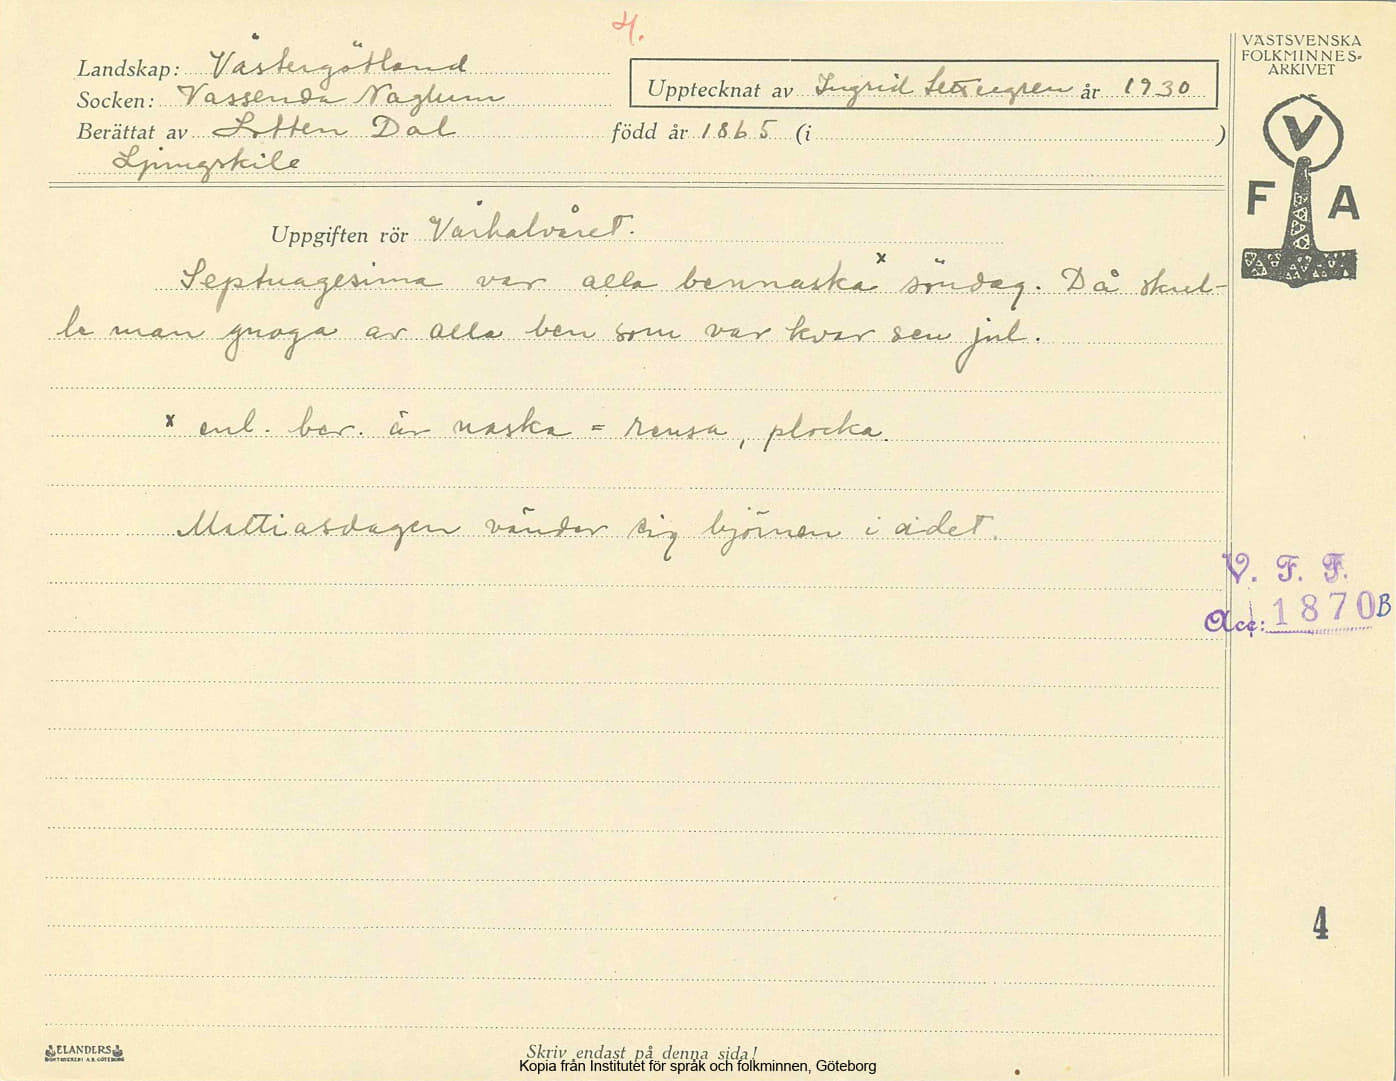 4.
Landskap: Västergötland
Socken: Vassenda Naglum
Upptecknat av Ingrid år 1930
Berättat av Lotten Dal född år 1865 (i )
Ljungskile
VÄSTSVENSKA
FOLKMINNES-
ARKIVET
V
F A
Uppgiften rör Vårhalvåret.
Septuagesima var alla bennaska x söndag. Då skul-
le man gnaga av alla ben som var kvar sen jul.
x enl. ber. är naska = rensa, plocka.
Mattiasdagen vänder sig björnen i idet.
V. F. F.
Acc: 1870B
4
ELANDERS
Skriv endast på denna sida!
Kopia från Institutet för språk och folkminnen, Göteborg